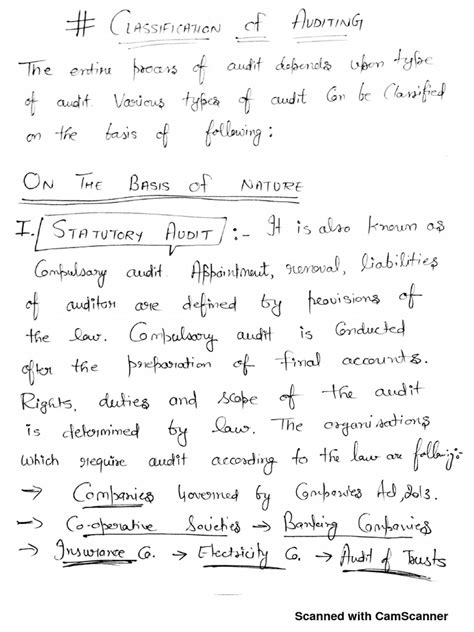 # CLASSIFICATION of AUDITING
The entire process of audit depends upon type
of audit. Various types of audit Can be Classified
on the basis of following :
ON THE BASIS of NATURE
I. STATUTORY AUDIT :- It is also known as
Compulsary audit. Appointment, removal, liabilities
of auditor are defined by provisions of
the law. Compulsory audit is Conducted
after the preparation of final accounts.
Rights, duties and scope of the audit
is determined by law. The organisations
which require audit according to the law are following:-
→ Companies Governed by Companies Act, 2013.
→ Co-operative Societies → Banking Companies
→ Insurance Co. → Electricity Co. → Audit of Trusts
Scanned with CamScanner